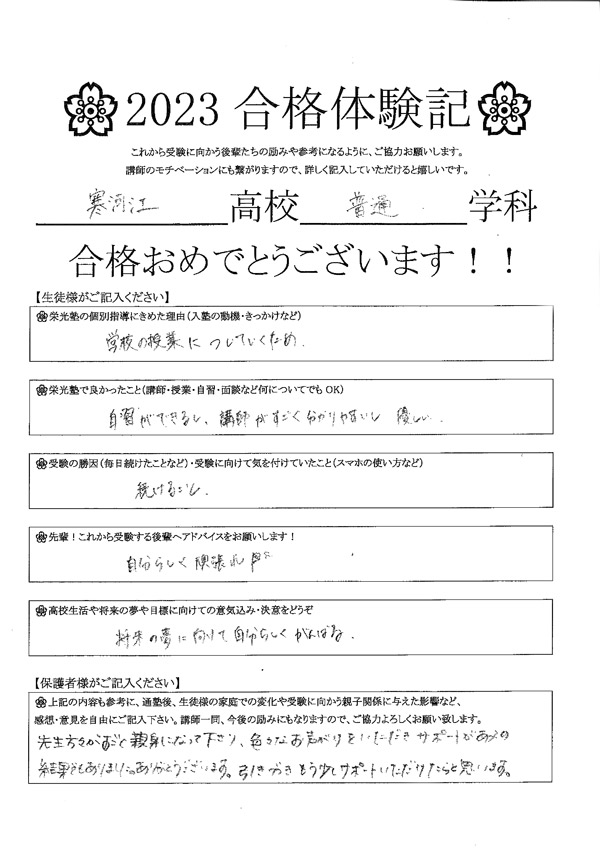 2023 合格体験記
これから受験に向かう後輩たちの励みや参考になるように、ご協力お願いします。
講師のモチベーションにも繋がりますので、詳しく記入していただけると嬉しいです。
寒河江 高校 普通 学科
合格おめでとうございます！！
【生徒様がご記入ください】
栄光塾の個別指導にきめた理由（入塾の動機・きっかけなど）
学校の授業についていくため.
栄光塾で良かったこと（講師・授業・自習・面談など何についてでもOK）
自習ができるし、講師がすごく分かりやすいし 優しい.
受験の勝因（毎日続けたことなど）・受験に向けて気を付けていたこと（スマホの使い方など）
続けること.
先輩！これから受験する後輩へアドバイスをお願いします！
自分らしく頑張れ
高校生活や将来の夢や目標に向けての意気込み・決意をどうぞ
将来の夢に向けて自分らしくがんばる.
【保護者様がご記入ください】
上記の内容も参考に、通塾後、生徒様の家庭での変化や受験に向かう親子関係に与えた影響など、
感想・意見を自由にご記入下さい。講師一同、今後の励みにもなりますので、ご協力よろしくお願い致します。
先生方が 親身になって下さり、色々な をいただき サポートがあっての
結果でもありました。ありがとうございます。引きつづき もう少しサポートいただけたらと思います。